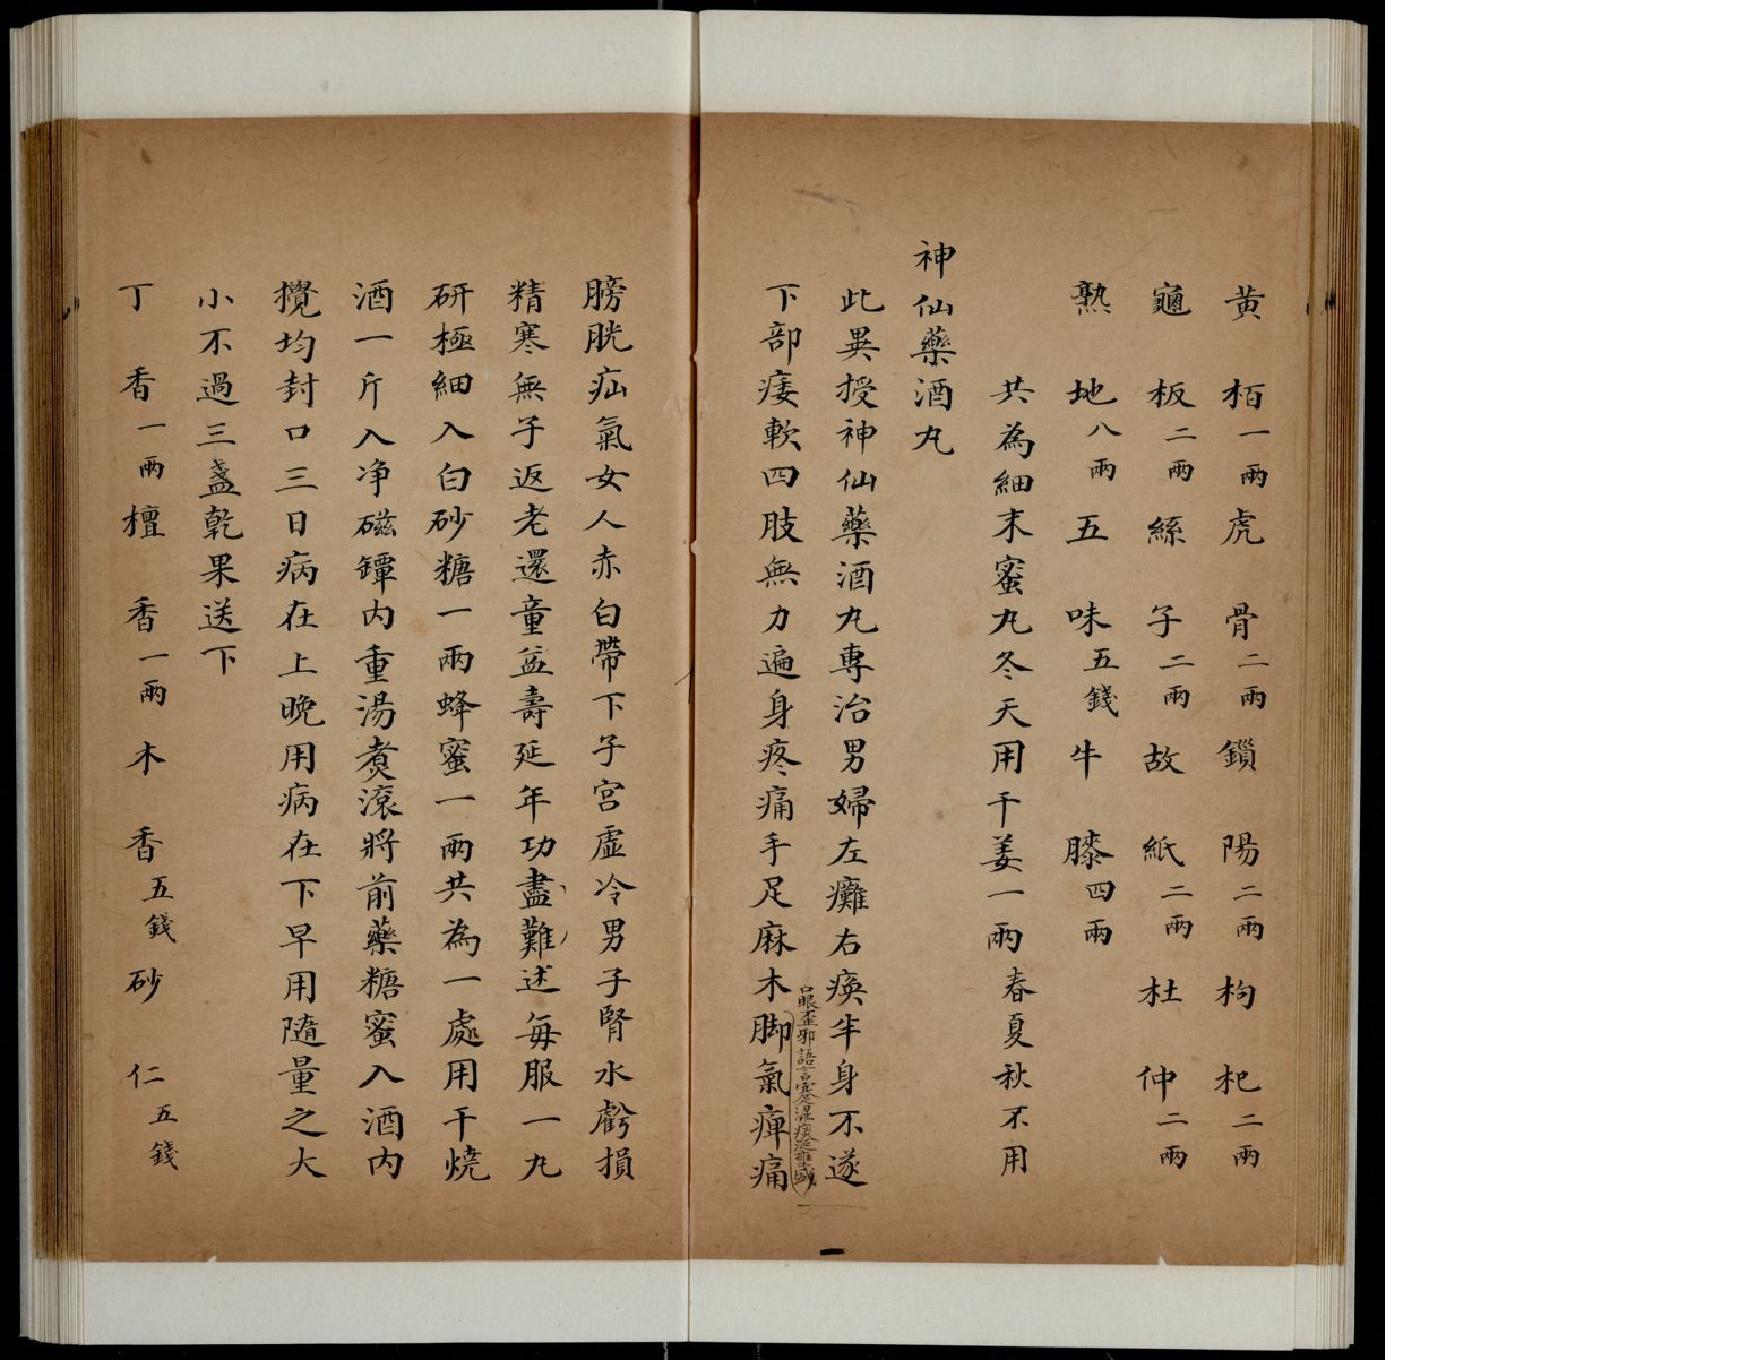 黄栢一兩虎骨二兩鎖陽二兩枸杞二兩
龜板二兩絲子二兩故紙二兩杜仲二兩
熟地八兩五味五錢牛膝四兩
共為細末蜜丸冬天用干姜一兩春夏秋不用
神仙藥酒丸
此異授神仙藥酒丸專治男婦左癱右瘓半身不遂
口眼歪邪語言蹇澀痰涎壅盛
下部痿軟四肢無力遍身疼痛手足麻木脚氣痺痛
膀胱疝氣女人赤白帶下子宮虛冷男子腎水虧損
精寒無子返老還童益壽延年功盡難述每服一丸
研極細入白砂糖一兩蜂蜜一兩共為一處用干燒
酒一斤入净磁罈内重湯煑滚將前藥糖蜜入酒内
攪均封口三日病在上晚用病在下早用隨量之大
小不過三盞乾果送下
丁香一兩檀香一兩木香五錢砂仁五錢